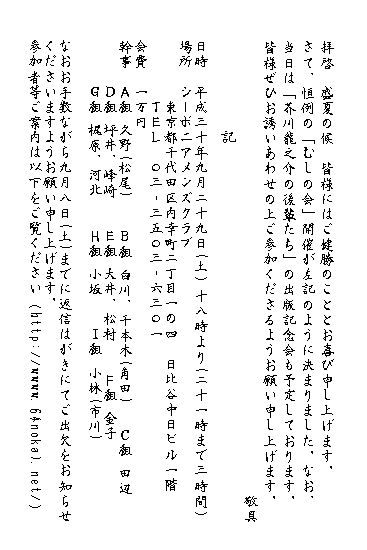 拝啓　盛夏の候　皆様にはご健勝のこととお喜び申し上げます。
さて、恒例の「むしの会」開催が左記のように決まりました。なお、
当日は「芥川龍之介の後輩たち」の出版記念会も予定しております。
皆様ぜひお誘いあわせの上ご参加くださるようお願い申し上げます。
敬具
記
日時　平成三十年九月二十九日(土)　十八時より(二十一時まで三時間)
場所　シーボニアメンズクラブ
東京都千代田区内幸町二丁目一の四　日比谷中日ビル一階
TEL　〇三-三五〇三-六三〇一
会費　一万円
幹事　A組 久野(松尾)　B組 白川、千本木(角田)　C組 田辺
D組 坪井、峰崎　E組 大井、松村　F組 金子
G組 梶原、河北　H組 小坂　I組 小林(市川)
なおお手数ながら九月八日(土)までに返信はがきにてご出欠をお知らせ
くださいますようお願い申し上げます。
参加者等ご案内は以下をご覧ください(http://www.64nokai.net/)